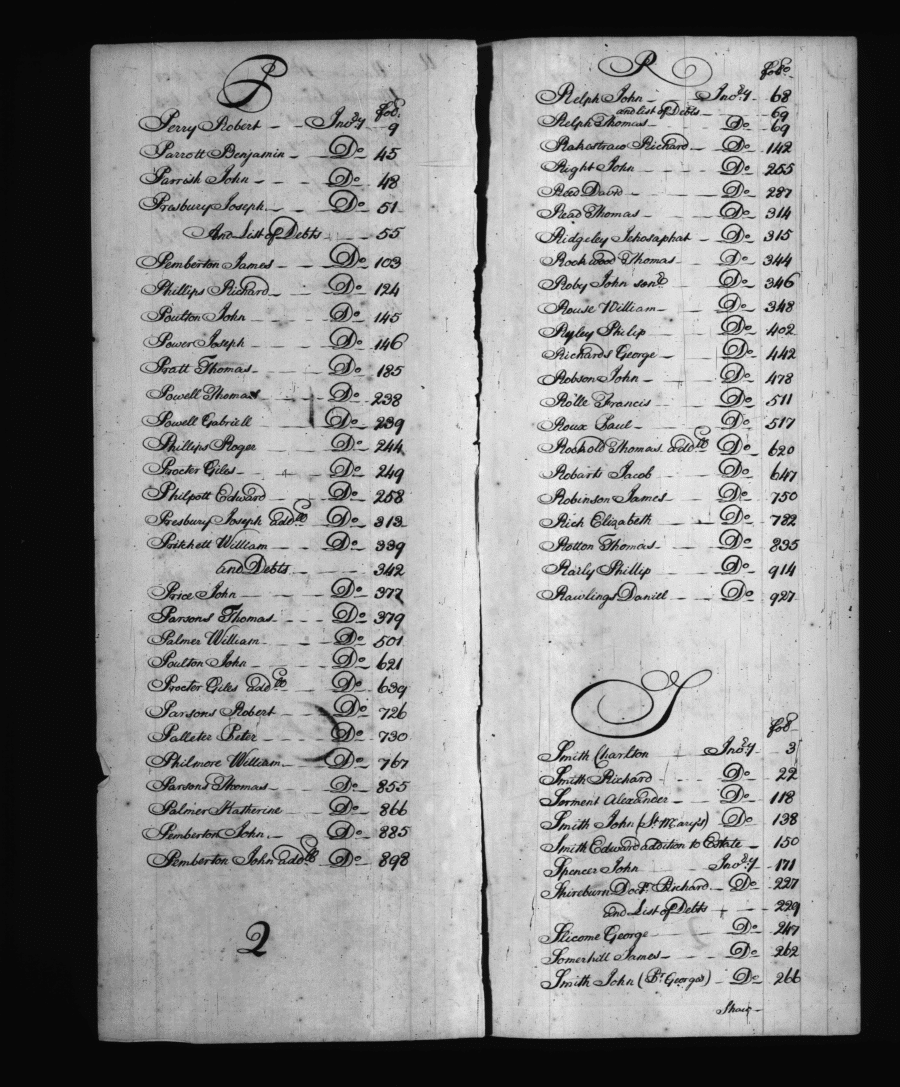 P
fol.
Perry Robert Invry 9
Parrott Benjamin Do 45
Parrish John Do 48
Presbury Joseph Do 51
And List of Debts 55
Pemberton James Do 103
Phillips Richard Do 124
Poulton John Do 145
Power Joseph Do 146
Pratt Thomas Do 185
Powell Thomas Do 238
Powell Gabriell Do 239
Phillips Roger Do 244
Procter Giles Do 249
Philpott Edward Do 258
Presbury Joseph addll Do 313
Pritchett William Do 339
and Debts 342
Price John Do 377
Parsons Thomas Do 379
Palmer William Do 501
Poulton John Do 621
Procter Giles addll Do 639
Parsons Robert Do 726
Palleter Peter Do 730
Philmore William Do 767
Parsons Thomas Do 855
Palmer Katherine Do 866
Pemberton John Do 885
Pemberton John addll Do 898
2
R
folo
Relph John Invry 68
and list of Debts 69
Relph Thomas Do 69
Rakestraw Richard Do 142
Right John Do 255
Reed David Do 287
Read Thomas Do 314
Ridgeley Jehosaphat Do 315
Rockwood Thomas Do 344
Roby John senr Do 346
Rouse William Do 348
Ryley Philip Do 402
Richards George Do 442
Robson John Do 478
Rolle Francis Do 511
Roux Paul Do 517
Rockold Thomas addll Do 620
Robarts Jacob Do 647
Robinson James Do 750
Rich Elizabeth Do 782
Rotton Thomas Do 835
Rarly Phillip Do 914
Rawlings Daniel Do 927
S
fol.
Smith Charlton Invry 3
Smith Richard Do 22
Serment Alexander Do 118
Smith John (St. Mary's) Do 138
Smith Edward addition to Estate 150
Spencer John Invry 171
Shireburn Doctr Richard Do 227
and List of Debts 229
Slicome George Do 247
Somerhill James Do 262
Smith John (Pr. Georges) Do 266
Shaw